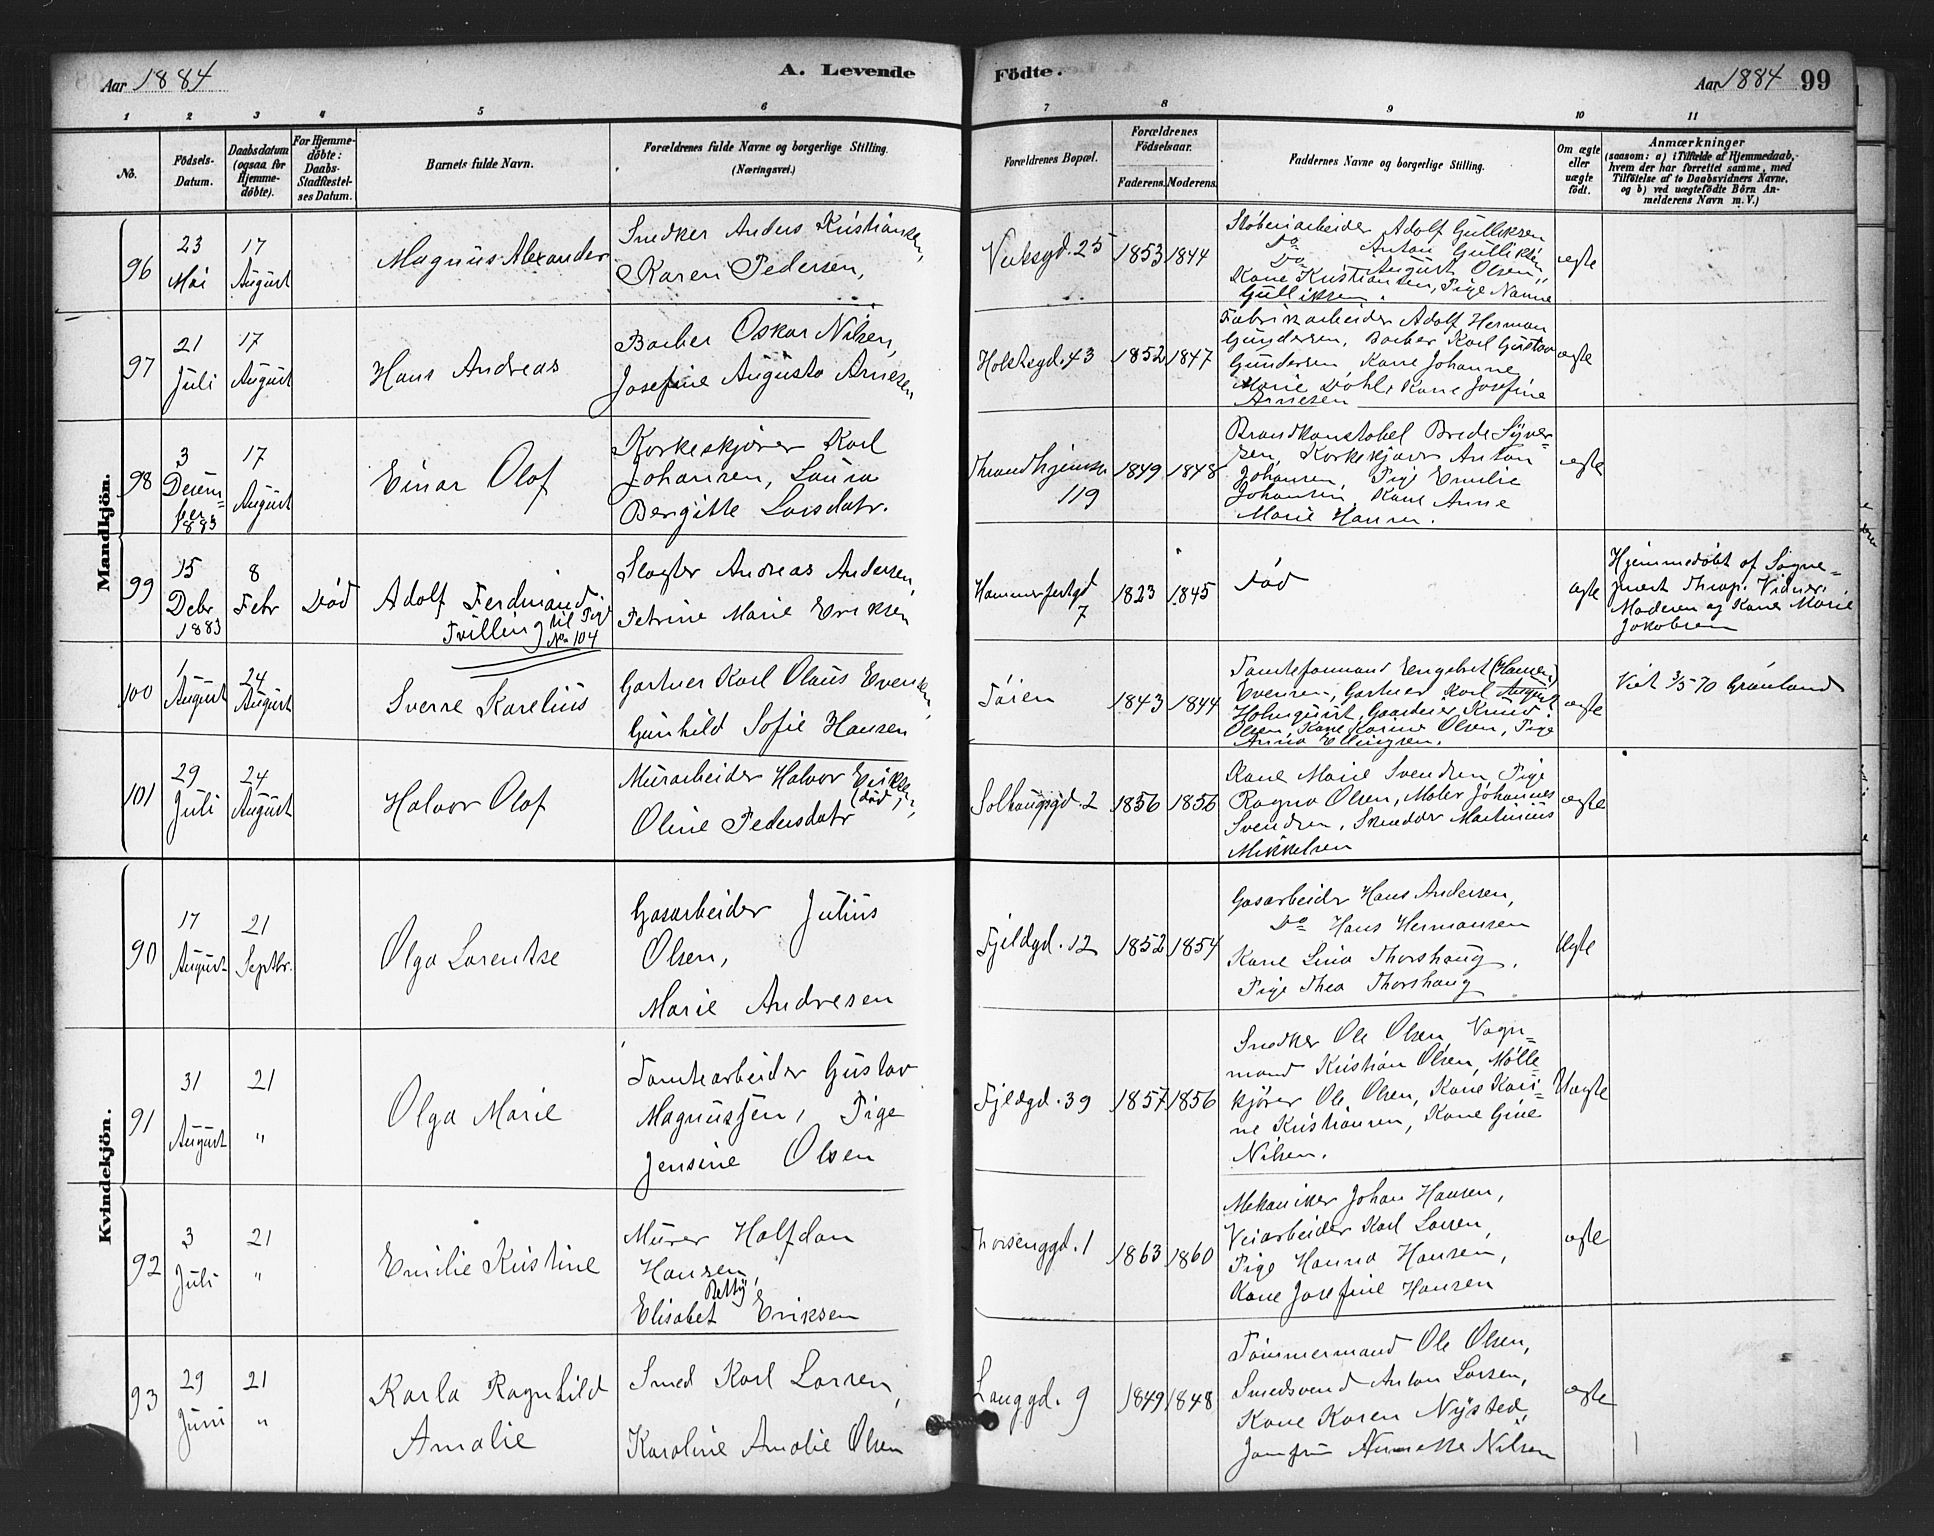 Aar 1884
A. Levende
Födte.
Aar 1884 99
1 2 3 4 5 6 7 8 9 10 11
No.
Födsels-
Datum.
Daabsdatum
(ogsaa for
Hjemme-
döbte).
For Hjemme-
döbte:
Daabs-
Stadfæstel-
ses Datum.
Barnets fulde Navn.
Forældrenes fulde Navne og borgerlige Stilling.
(Næringsvei.)
Forældrenes Bopæl.
Forældrenes
Födselsaar.
Faderens. Moderens.
Faddernes Navne og borgerlige Stilling.
Om ægte
eller
uægte
födt.
Anmærkninger
(saasom: a) i Tilfælde af Hjemmedaab,
hvem der har forrettet samme, med
Tilföielse af to Daabsvidners Navne,
og b) ved uægtefödte Börn An-
melderens Navn m. V.)
Mandkjön.
96
23
Mai
17
August
Magnus Alexander
Snedker Anders Kristiansen,
Karen Pedersen,
25
1853 1844
Støberiarbeider Adolf Gulliksen
Do Anton Gulliksen,
Do August Olsen,
Kone Kristiansen, Pige Nanne
Gulliksen.
ægte
97
21
Juli
17
August
Hans Andreas
Barber Oskar Nilsen,
Josefine Augusta Arnesen,
Holstsgd. 43
1852 1847
Fabrikarbeider Adolf Herman
Gundersen, Barber Karl Gustav
Gundersen Kone Johanne
Marie Døhl, Kone Josefine
Arnesen
ægte
98
3
Decem-
ber
1883
17
August
Einar Olaf
Korkeskjører Karl
Johansen, Laura
Bergitte Larsdatr.
Throndhjemsv
119
1849 1848
Brandkonstabel Brede Syver-
sen, Korkeskjører Anton
Johansen, Pige Emilie
Johansen, Kone Anne
Marie Hansen.
ægte
99
15
Debr
1883
8
Febr
Død
Adolf Ferdinand
Tvilling til Pige
No 104
Slagter Andreas Andersen,
Petrine Marie Eriksen
Hammerfestgd
7
1823 1845
Død
ægte
Hjemmedøbt af Sogne-
prest Thrap. Vidner:
Moderen og Kone Marie
Jakobsen
100
1
August
24
August
Sverre Karelius
Gartner Karl Olaus Evensen,
Gunhild Sofie Hansen
Tøien
1843 1844
Tomteformand Engebret (Hansen)
Evensen, Gartner Karl August
Holmquist, Gaardeier Knud
Olsen, Kone Karine Olsen, Pige
Anna Ellingsen.
ægte
Viet 3/5 70 Grønland
101
29
Juli
24
August
Halvor Olaf
Murarbeider Halvor Eriksen,
(død)
Oline Pedersdatr
Solhaugsgd. 2
1856 1856
Kone Marie Svendsen, Pige
Ragna Olsen, Maler Johannes
Svendsen, Skrædder Martinius
Mikkelsen
ægte
Kvindekjön.
90
17
August
21
Septbr.
Olga Lorentse
Gasarbeider Julius
Olsen,
Marie Andresen
Fjeldgd. 12
1852 1854
Gasarbeider Hans Andersen,
Do Hans Hermansen
Kone Lina Thorshaug,
Pige Thea Thorshaug
Ægte
91
31
August
21
"
Olga Marie
Tomtearbeider Gustav
Magnussen, Pige
Jensine Olsen
Fjeldgd. 39
1857 1856
Snedker Ole Olsen, Vogn-
mand Kristian Olsen, Mølle-
kjører Ole Olsen, Kone Kari-
ne Kristiansen, Kone Gine
Nilsen.
Uægte
92
3
Juli
21
"
Emilie Kristine
Murer Halfdan
Hansen,
Betty
Elisabet Eriksen
Thorsenggd. 1
1863 1860
Mekaniker Johan Hansen,
Veiarbeider Karl Larsen,
Pige Hanna Hansen,
Kone Josefine Hansen
ægte
93
29
Juni
21
"
Karla Ragnhild
Amalie
Smed Karl Larsen,
Karoline Amalie Olsen
Langgd. 9
1849 1848
Tømmermand Ole Olsen,
Smedsvend Anton Larsen,
Kone Karen Nysted,
Jomfru Annette Nilsen
ægte